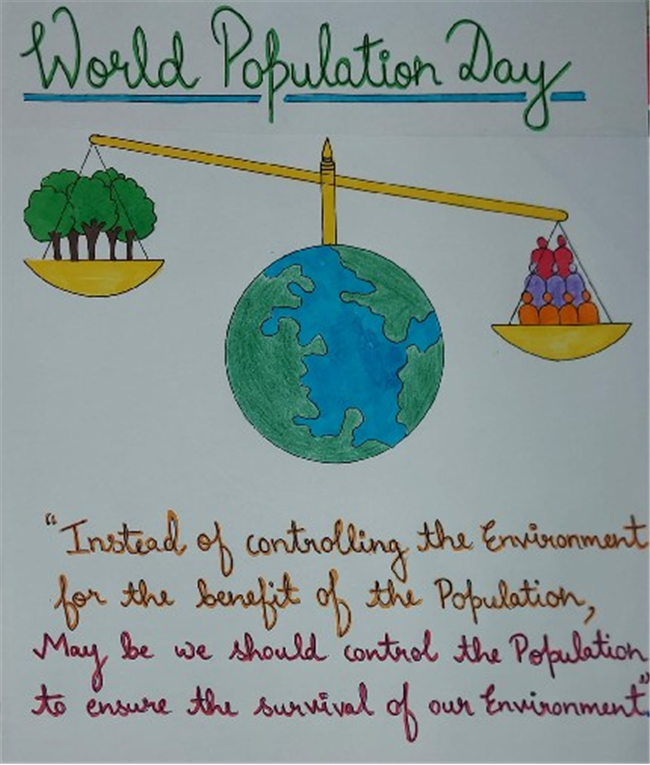 World Population Day
"Instead of controlling the Environment
for the benefit of the Population,
May be we should control the Population
to ensure the survival of our Environment"